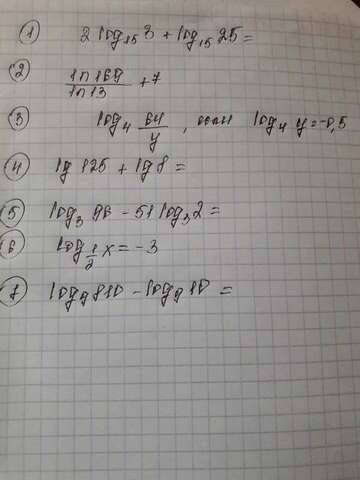 ① 2 log₁₅ 3 + log₁₅ 25 =
② ln 169 / ln 13 + 7
③ log₄ 64/y , если log₄ y = -0,5
④ lg 125 + lg 8 =
⑤ log₃ 96 - 51 log₃ 2 =
⑥ log₁/₂ x = -3
⑦ log₉ 810 - log₉ 10 =